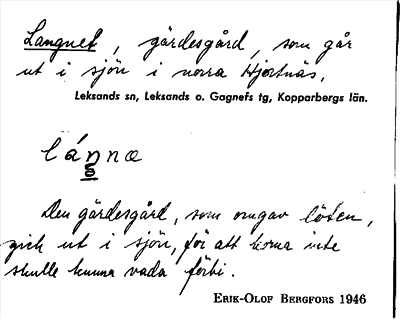 Langnet, gärdesgård, som går
ut i sjön i norra Hjortnäs.
Leksands sn, Leksands o. Gagnefs tg, Kopparbergs län.
Den gärdesgård, som omgav löten,
gick ut i sjön, för att korna inte
skulle kunna vada förbi.
ERIK-OLOF BERGFORS 1946